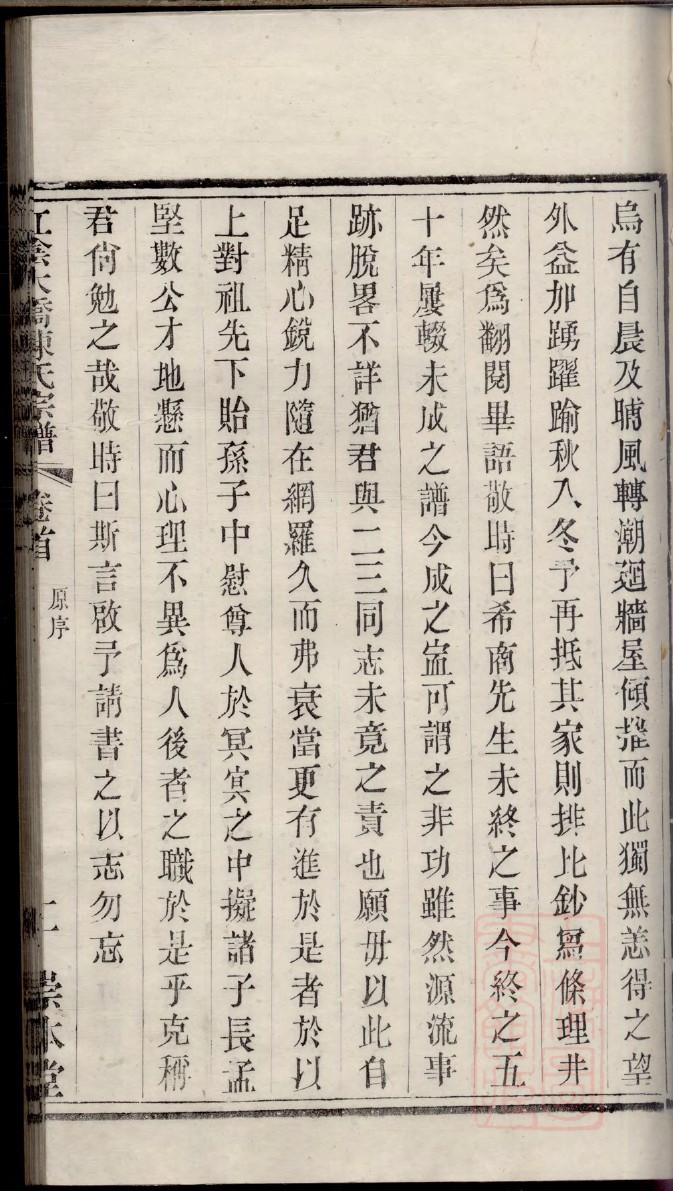 烏有自晨及晡風轉潮廻牆屋傾摧而此獨無恙得之望
外益加踴躍踰秋入冬予再抵其家則排比鈔寫條理井
然矣爲翻閱畢語敬時曰希南先生未終之事今終之五
十年屢輟未成之譜今成之寍可謂之非功雖然源流事
跡脫畧不詳猶君與二三同志未竟之責也願毋以此自
足精心銳力隨在網羅久而弗衰當更有進於是者於以
上對祖先下貽孫子中慰尊人於冥冥之中擬諸子長孟
堅數公才地懸而心理不異爲人後者之職於是乎克稱
君尙勉之哉敬時曰斯言啟予請書之以志勿忘
江陰大橋陳氏宗譜 卷首 原序 二 崇本堂